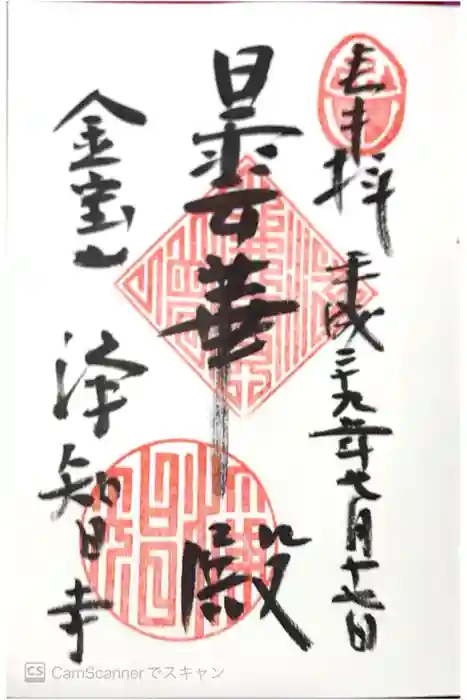 奉拝 平成二十九年七月十七日
曇華殿
金宝山 浄智寺
CS CamScannerでスキャン